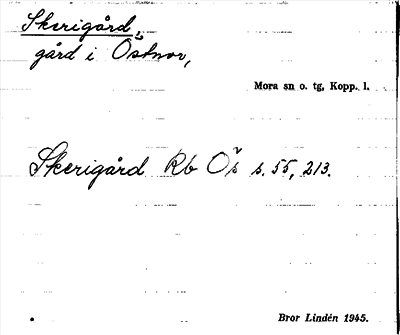 Skerigård,
gård i Östnor,
Mora sn o. tg, Kopp. l.
Skerigård Rb Ök s. 55, 213.
Bror Lindén 1945.